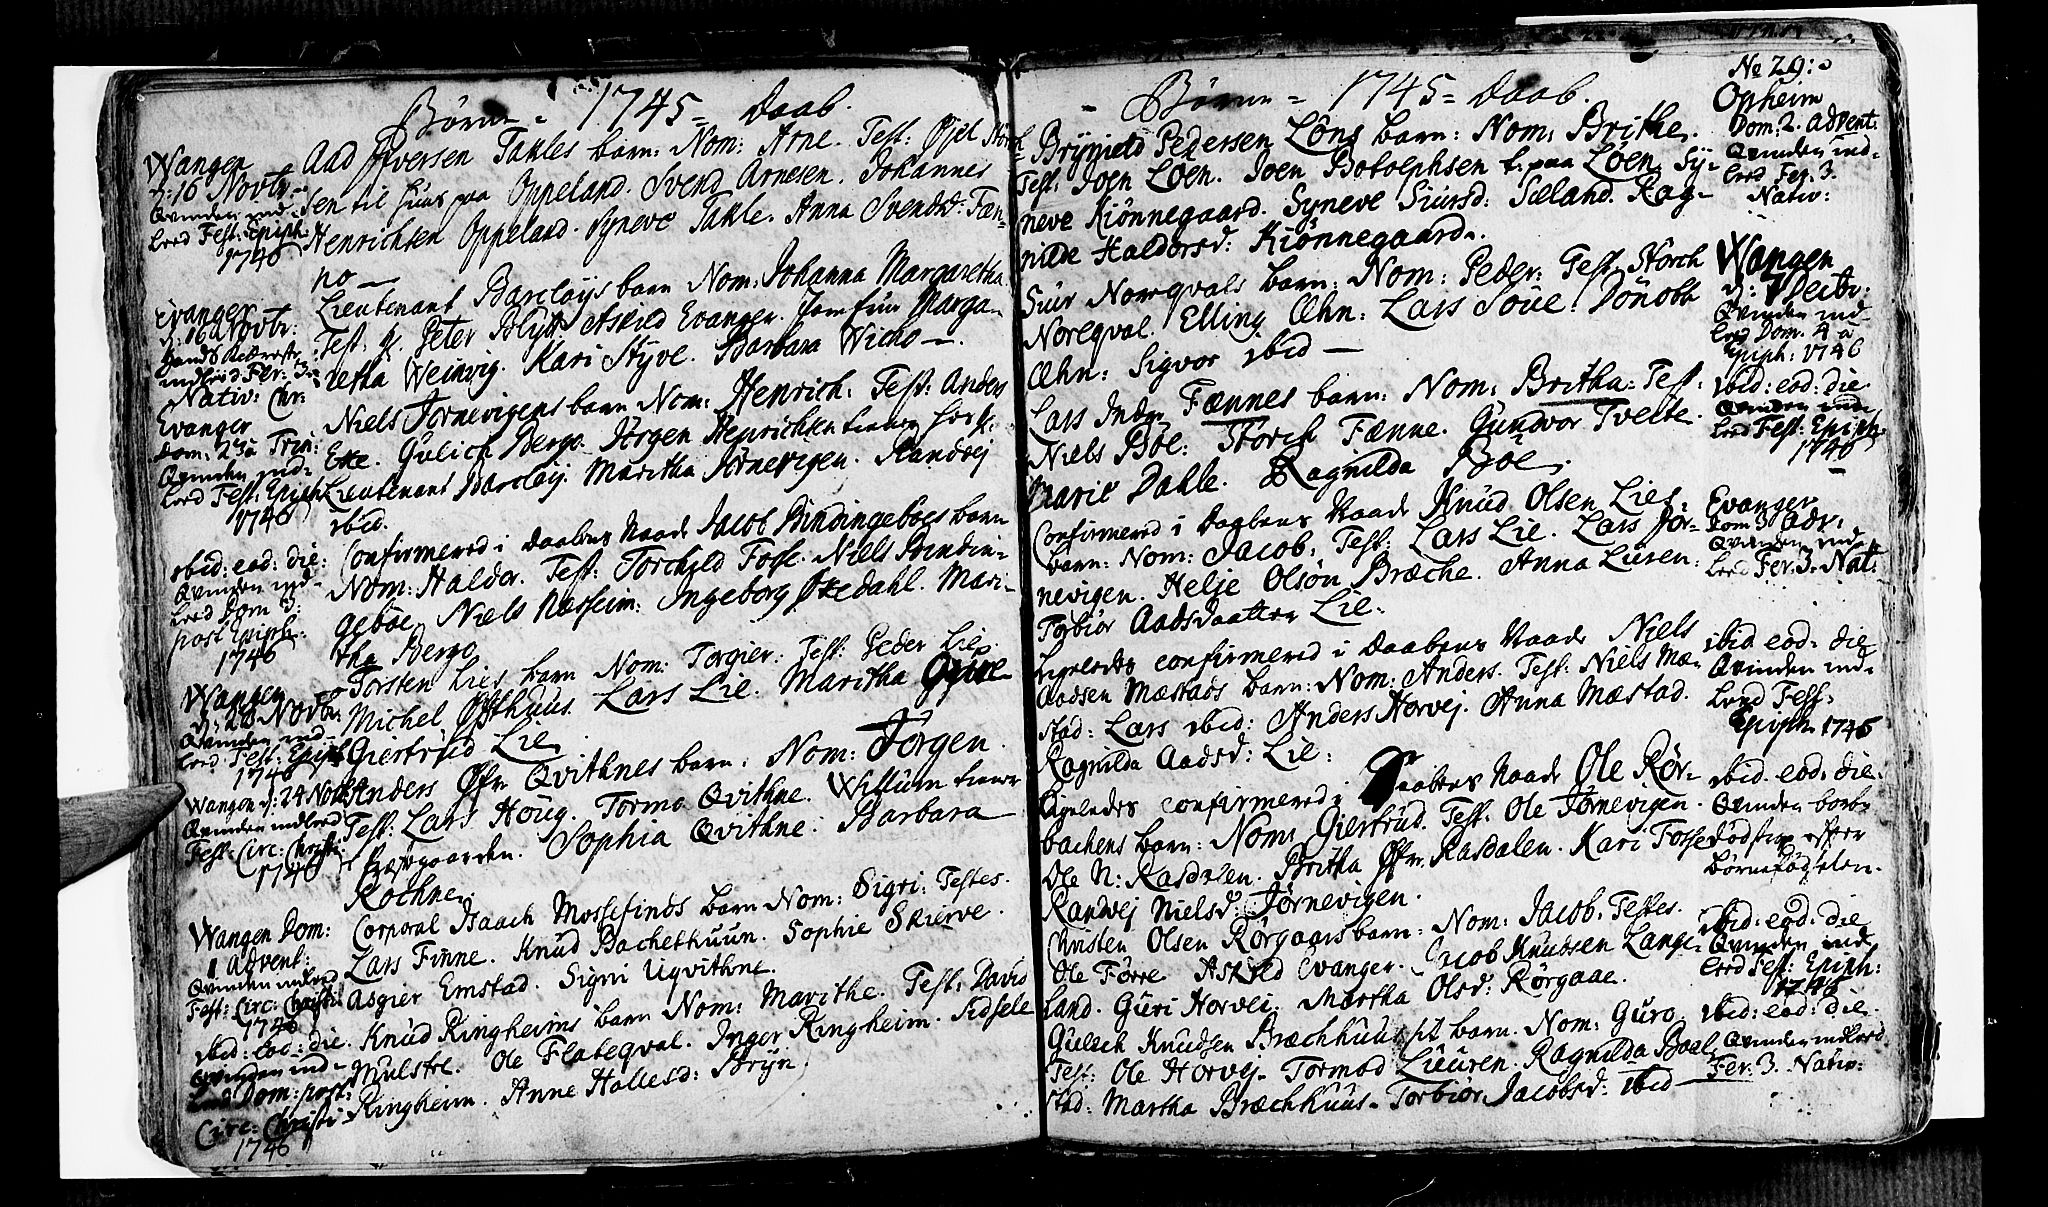 Børn = 1745 = Daab.
Wangen
d: 16 Novbr.
Qvinden ind-
leed Fest: Epiph:
1746
Aad Iversen Takles barn: Nom: Arne. Test:
sen til huus paa Oppeland. Svend Arnesen. Johannes
Henrichsen Oppeland. Syneve Takle. Anna Svendsd: Fæn-
no —
Evanger
d: 16 Novbr:
indleed Fer: 3
Nativ: Chr:
Lieutenant Barclays barn Nom: Johanna Margaretha
Test: Hr. Peter Blytt Askild Evanger. Jomfrue Marga-
retha Weinvig. Kari Styve. Barbara —.
Evanger
Dom: 23 à Trin:
Qvinden ind-
leed Fest: Epiph
1746
Niels Jørnevigens barn Nom: Henrich: Test: Anders
Eke. Gulich Berge. Jørgen Henrichsen
Lieutenant Barclay. Maritha Jørnevigen. Randvej
ibid.
ibid: eod: die:
Qvinden ind-
leed Dom 3:
post Epiph:
1746
Confirmered i Daabens Naade Jacob Bindingebøes barn
Nom: Haldor. Test: Torchild Fosse. Niels Bindin-
gebøe. Niels Næsheim: Ingeborg Økedahl. Mari-
tha Berge
Wangen
Qvinden ind-
leed Fest: Epiph
1746
Torsten Lies barn Nom: Torgier: Test: Peder Lie.
Michel Østhuus. Lars Lie. Maritha
Giertrud Lie
Wangen d: 24 Novbr
Qvinden indleed
Fest: Circ: Christi
1746
Anders Qvithnes barn: Nom: Jørgen.
Test: Lars Houg. Tormo Qvithne. Willum tiener
i Præstgaarden. Sophia Qvithne: Barbara
Rochne.
Wangen Dom:
1 Advent:
Qvinden indleed
Fest: Circ: Christi
1746
Corporal Isaach Mossefinds barn Nom: Sigri: Testes.
Lars Finne. Knud Bachethuun. Sophie Skierve.
Asgier Emstad. Sigri Ugvithne.
ibid: eod: die.
Qvinden ind-
leed Dom: post
Circ: Christi
1746
Knud Ringheims barn Nom: Marithe. Test: David
Mulstre. Ole Flateqval. Inger Ringheim. Sidsele
Ringheim. Anne Hallesd: Bryn.
No 29:
- Børn = 1745 = Daab.
Opheim
Dom: 2. Advent:
Qvinden ind-
leed Fer. 3.
Nativ:
Brynield Pedersen Löns barn: Nom: Brithe.
Test: Joen Löen. Joen Botolphsen t. paa Löen. Sy-
neve Kiønnegaard. Syneve Siursd: Sæland. Rag-
nilde Haldorsd: Kiønnegaard.
Wangen
Qvinden ind-
leed Dom. 4 à
Epiph: 1746
Siur Norqvals barn: Nom: Peder: Test: Storch
Noreqval. Elling Æhn: Lars Soue:
Æhn: Sigvor ibid —
ibid: eod: die
Qvinden ind-
leed Fest: Epiph:
1746
Lars Fænnes barn: Nom: Britha: Test:
Niels Bøe: Storch Fænne. Gundvor Tveite.
Marie Dahle. Ragnilda Bøe.
Evanger
Dom 3 Adv:
Qvinden ind-
leed Fer. 3. Nat:
Confirmered i Daabens Naade Knud Olsen Lies.
barn: Nom: Jacob: Test: Lars Lie. Lars Jør-
nevigen. Helje Olsøn Bræche. Anna Luren:
Torbiør Aadsdaatter Lie.
ibid eod: die
Qvinden ind-
leed Fest:
Epiph 1746
Ligeledes confirmered i Daabens Naade Niels
Aadsen Mæstads barn: Nom: Anders. Test: Niels Mæ-
stad: Lars ibid: Anders Horvej. Anna Mæstad.
Ragnilda Aadsd: Lie:
ibid: eod: die.
Qvinden
efter
Ligeledes confirmered i Daabens Naade Ole Rør-
bachens barn: Nom: Giertrud. Test: Ole Jørnevigen.
Ole N: Rasdalen. Britha Rasdalen. Kari Fosse
Randvej Nielsd: Jørnevigen.
ibid: eod: die
Qvinden ind
leed Fest: Epiph:
1746
Christen Olsen Rørgaas barn: Nom: Jacob: Testes.
Ole Førre Askild Evanger. Jacob Knudsen Lange-
land. Guri Horvei. Martha Olsd: Rørgaae.
ibid: eod: die.
Qvinden indleed
Fer: 3. Nativ:
Gulech Knudsen Bræchhuus barn. Nom: Guro.
Test: Ole Horvej. Tormod Lieuren. Ragnilda
stad: Martha Bræchhuus. Torbiør Jacobsd: ibid —